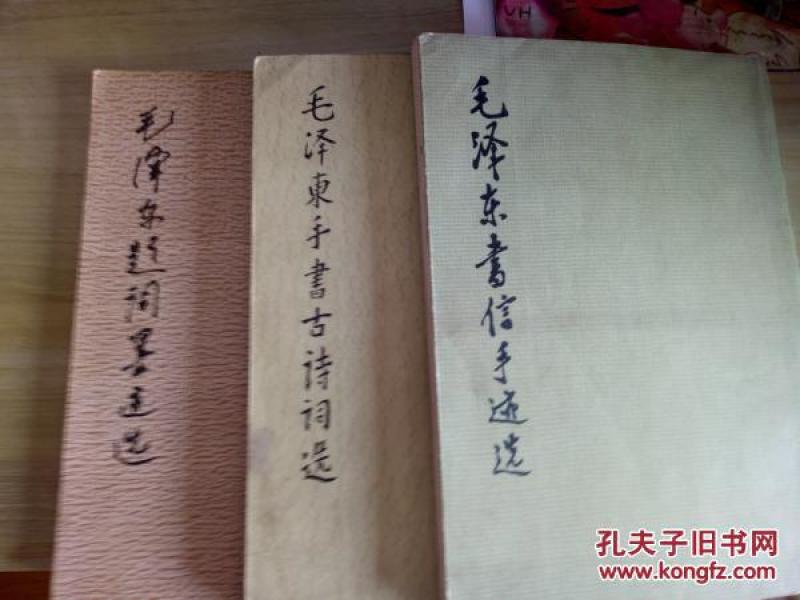 毛泽东题词墨迹选
毛泽東手書古詩词选
毛泽东書信手迹选
孔夫子旧书网
www.kongfz.com